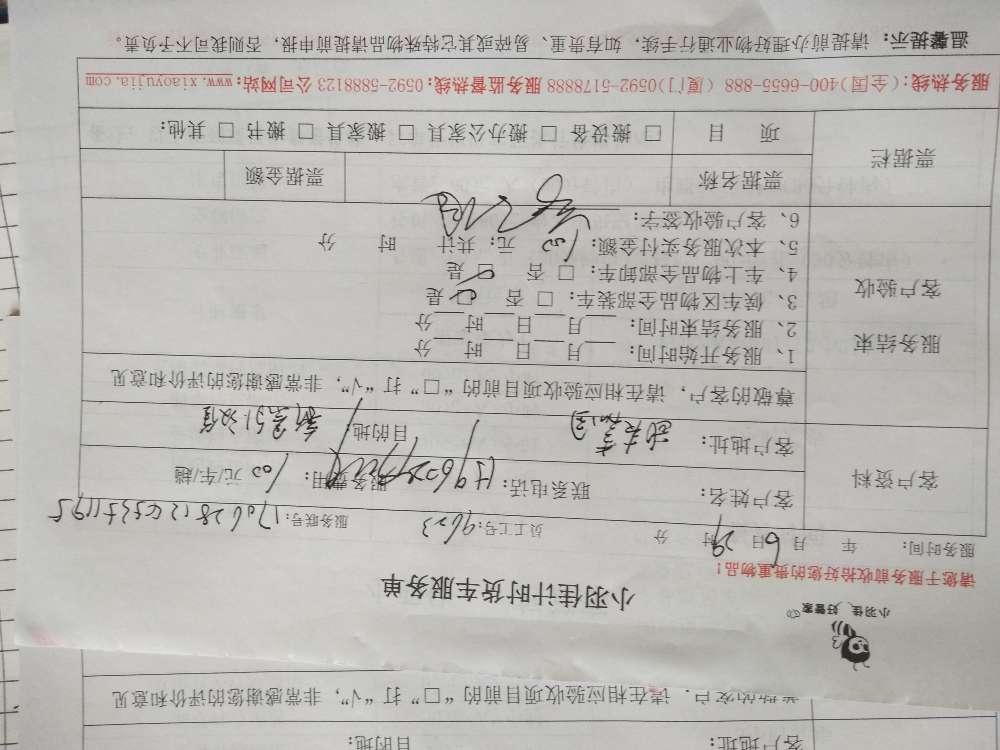 小羽佳 好管家
小羽佳计时货车服务单
请您于服务前收拾好您的贵重物品！
服务时间： 年 6月29日 时 分 员工工号：9623 服务联号：
客户资料
客户姓名： 联系电话： 服务费用：100 元/车/趟
客户地址： 目的地：
尊敬的客户，请在相应验收项目前的“□”打“√”，非常感谢您的评价和意见
服务结束
客户验收
1、服务开始时间：___月___日___时___分
2、服务结束时间：___月___日___时___分
3、候车区物品全部装车：□ 否 ☑ 是
4、车上物品全部卸车：□ 否 ☑ 是
5、本次服务实付金额：100 元；共计 时 分
6、客户验收签字：
票据栏
票据名称 票据金额
项 目 □ 搬设备 □ 搬办公家具 □ 搬家具 □ 搬书 □ 其他：
服务热线：(全国)400-6655-888 (厦门)0592-5178888 服务监督热线：0592-5888123 公司网站：www.xiaoyujia.com
温馨提示：请提前办理好物业通行手续，如有贵重、易碎或其它特殊物品请提前申报，否则我司不予负责。
客户地址： 目的地：
尊敬的客户，请在相应验收项目前的“□”打“√”，非常感谢您的评价和意见